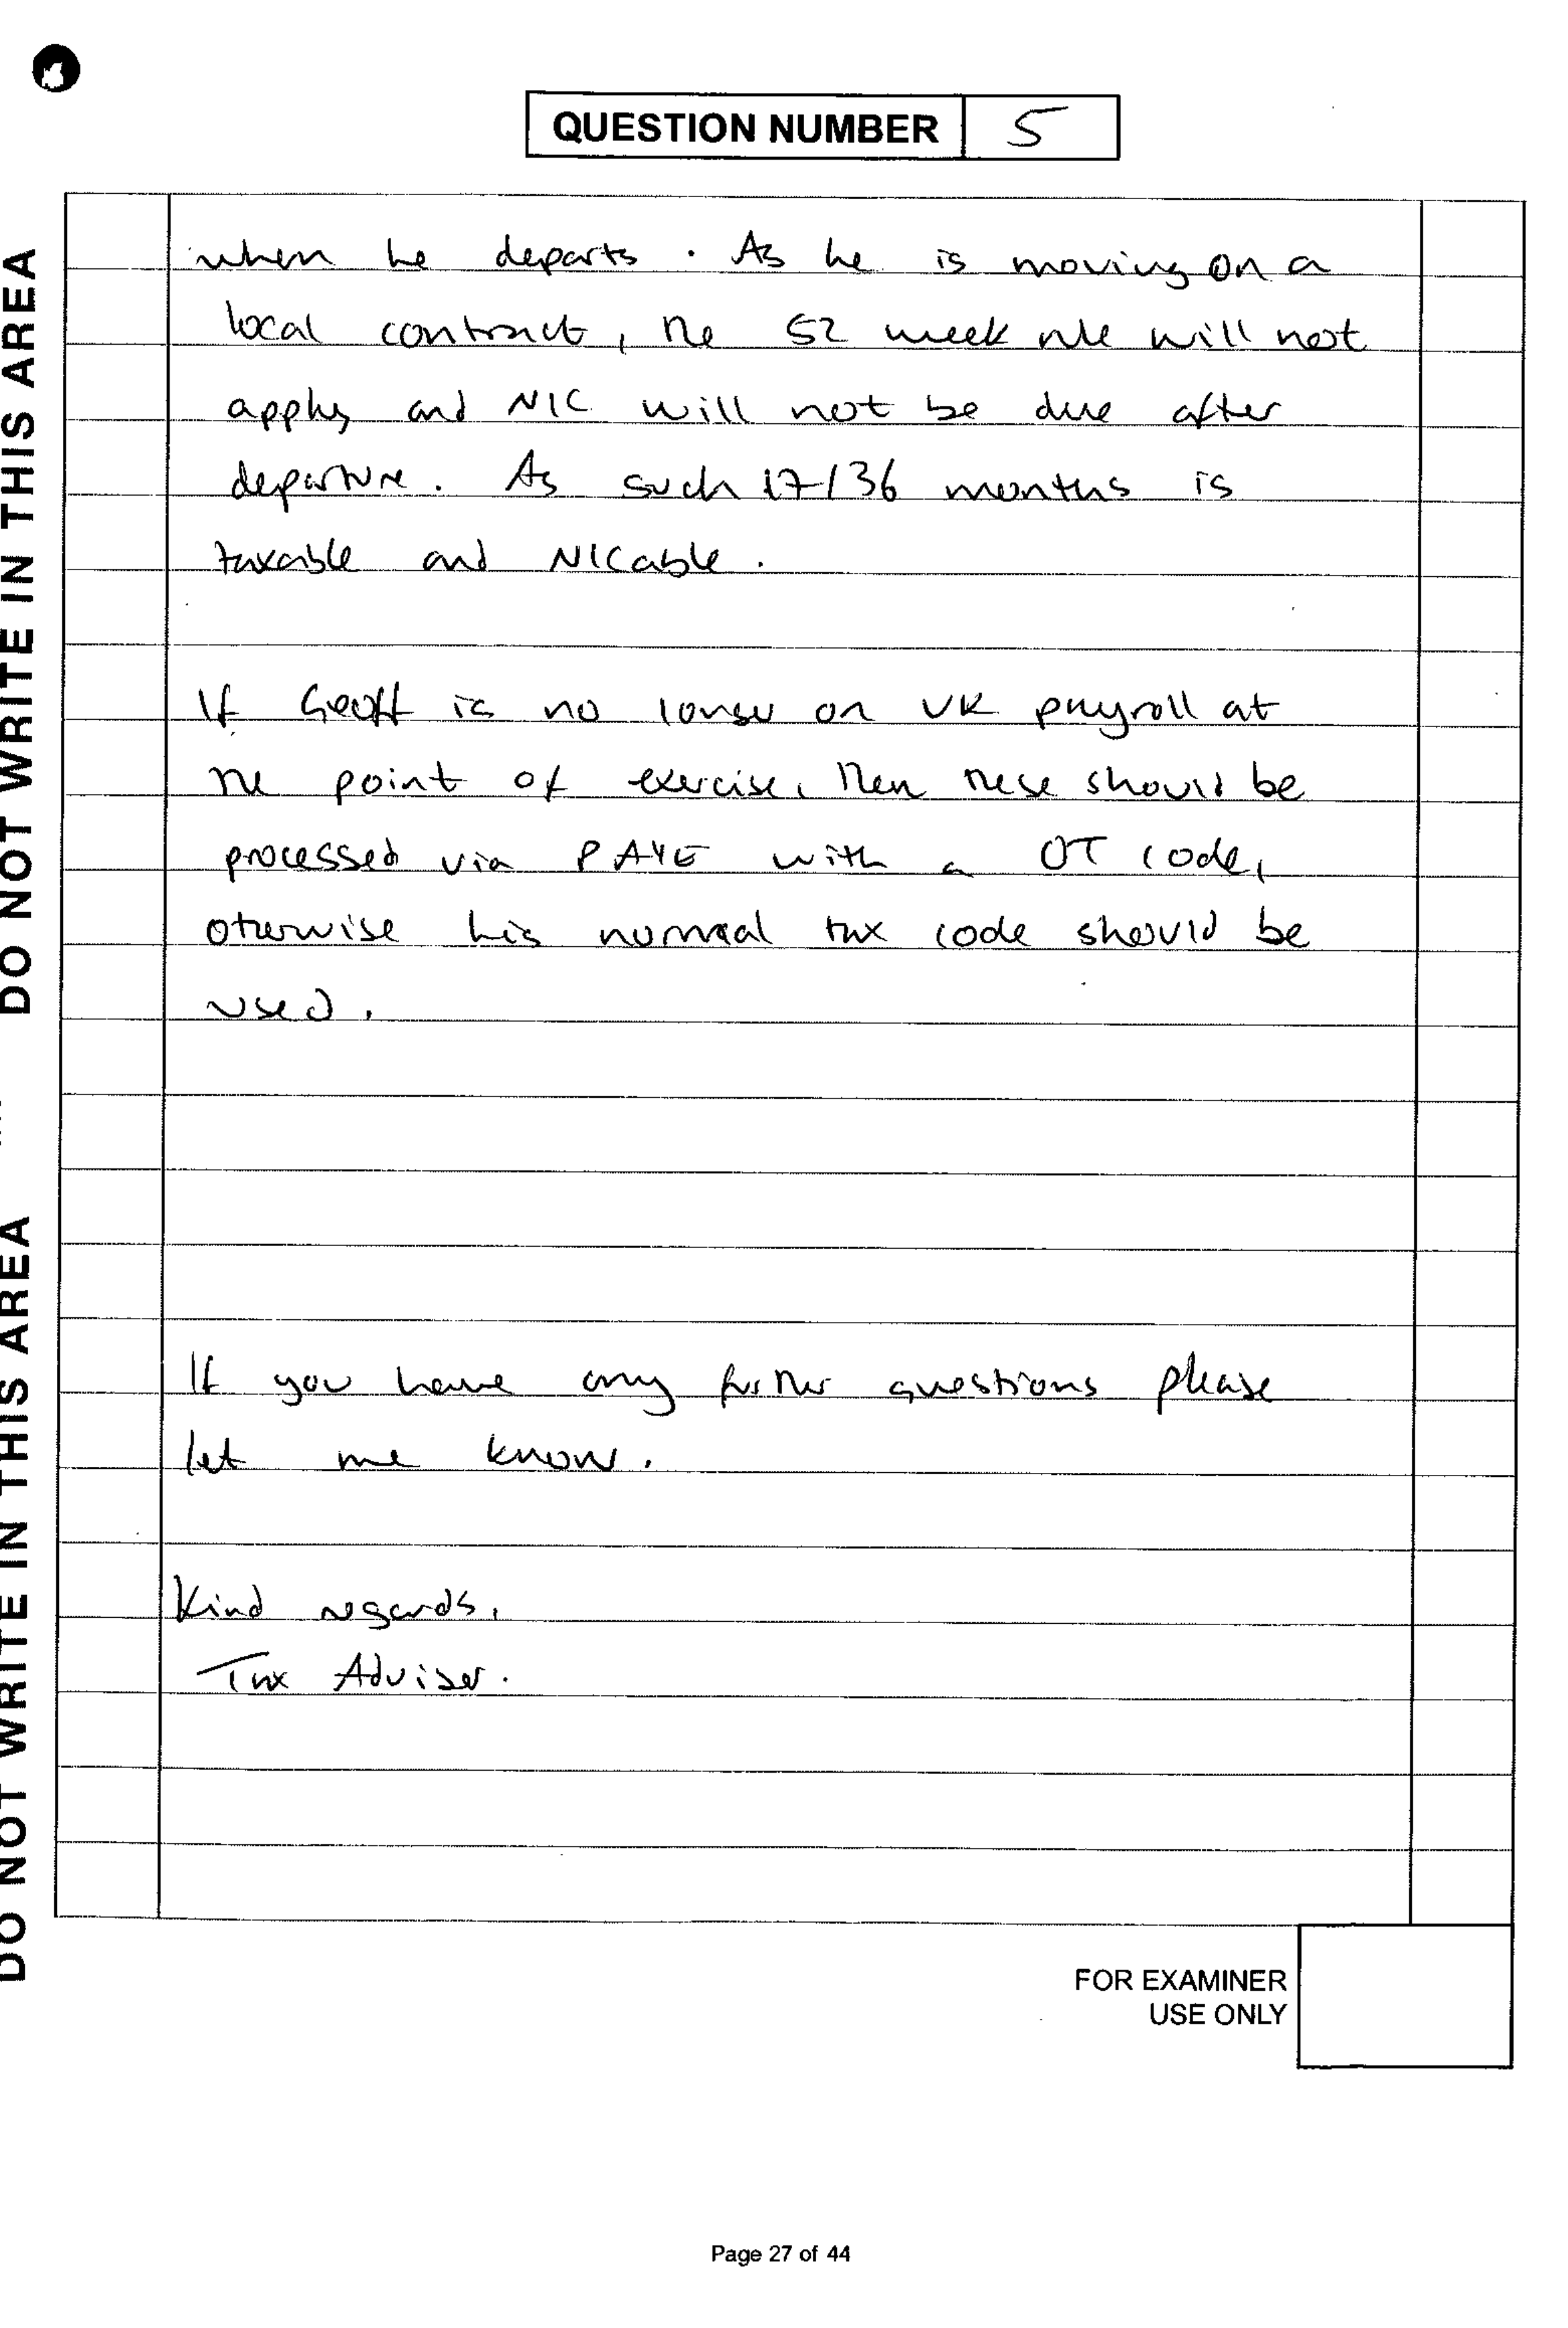 QUESTION NUMBER 5
when he departs. As he is moving on a
local contract, the 52 week rule will not
apply and NIC will not be due after
departure. As such 17/36 months is
taxable and NICable.
If Geoff is no longer on UK payroll at
the point of exercise, then these should be
processed via PAYE with a 0T code,
otherwise his normal tax code should be
used.
If you have any further questions please
let me know.
Kind regards,
Tax Adviser.
DO NOT WRITE IN THIS AREA
DO NOT WRITE IN THIS AREA
FOR EXAMINER
USE ONLY
Page 27 of 44